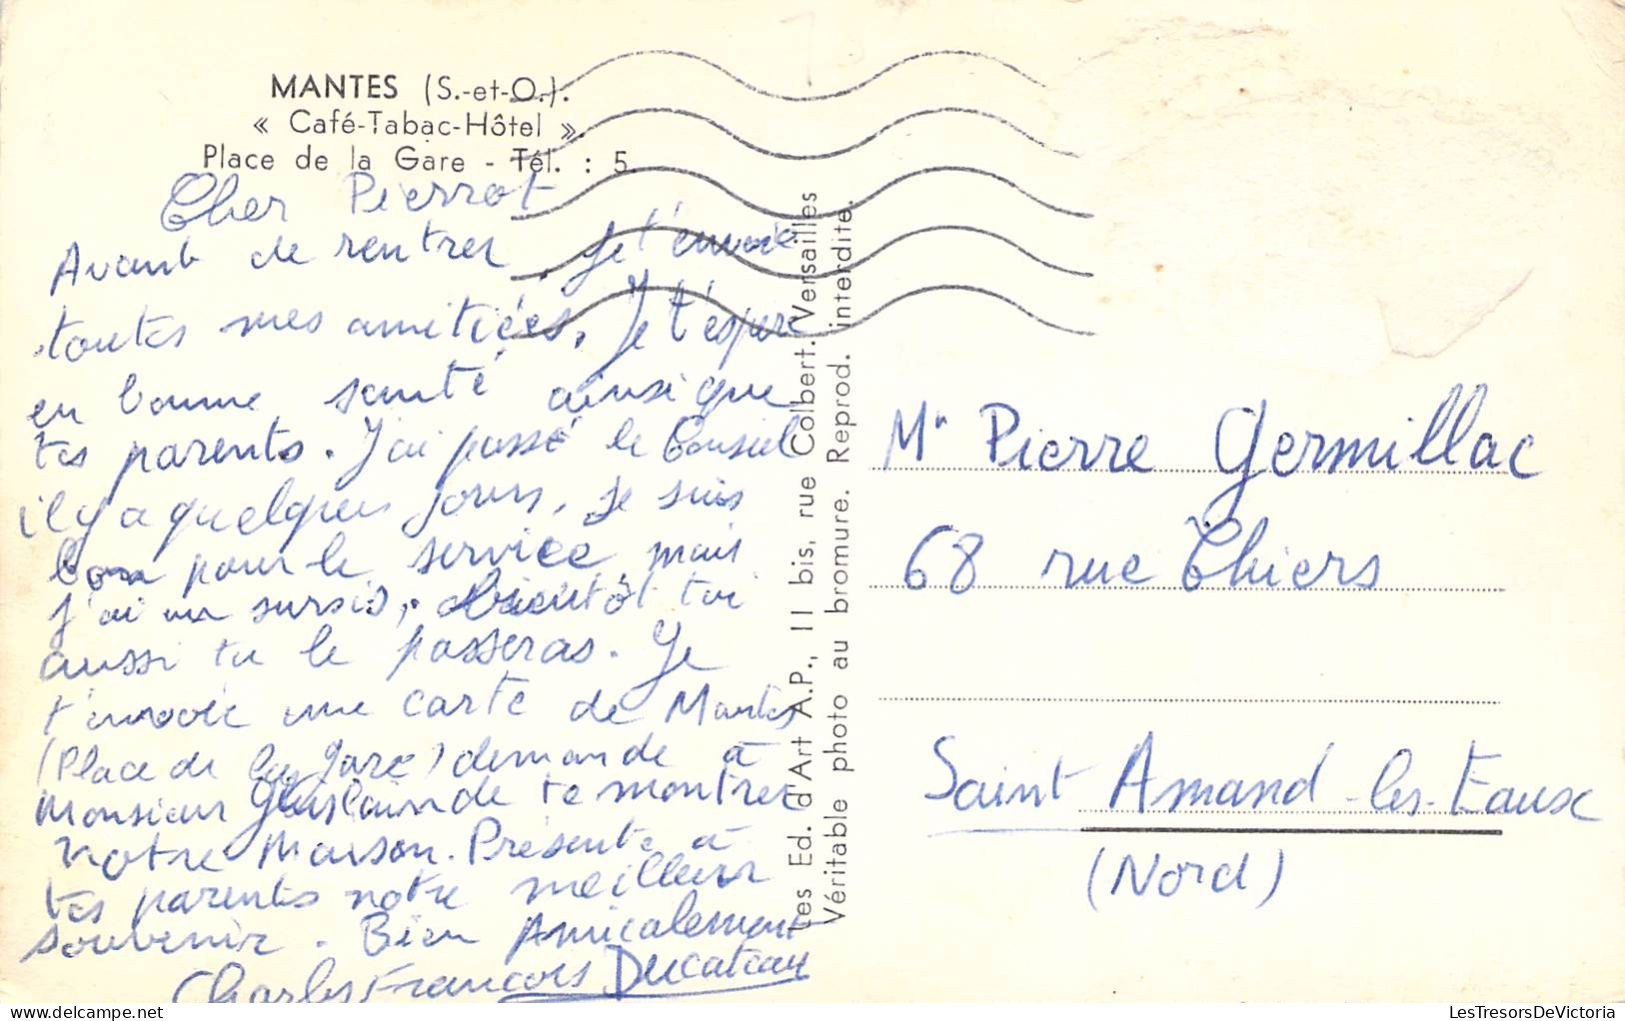 MANTES (S.-et-O.).
« Café-Tabac-Hôtel ».
Place de la Gare - Tél. : 5.
Cher Pierrot
Avant de rentrer, je t'envoie
toutes mes amitiées. Je t'espère
en bonne santé ainsi que
tes parents. J'ai passé le Conseil
il y a quelques jours, je suis
bon pour le service mais
j'ai un sursis, bientôt toi
aussi tu le passeras. Je
t'envoie une carte de Mantes
(Place de la gare) demande à
Monsieur Ghislain de te montrer
notre maison. Présente à
tes parents notre meilleur
souvenir. Bien Amicalement
Charles François Ducateau
Les Ed. d'Art A.P., 11 bis, rue Colbert. Versailles
Véritable photo au bromure. Reprod. interdite.
Mr Pierre Germillac
68 rue Thiers
Saint Amand-les-Eaux
(Nord)
LesTresorsDeVictoria